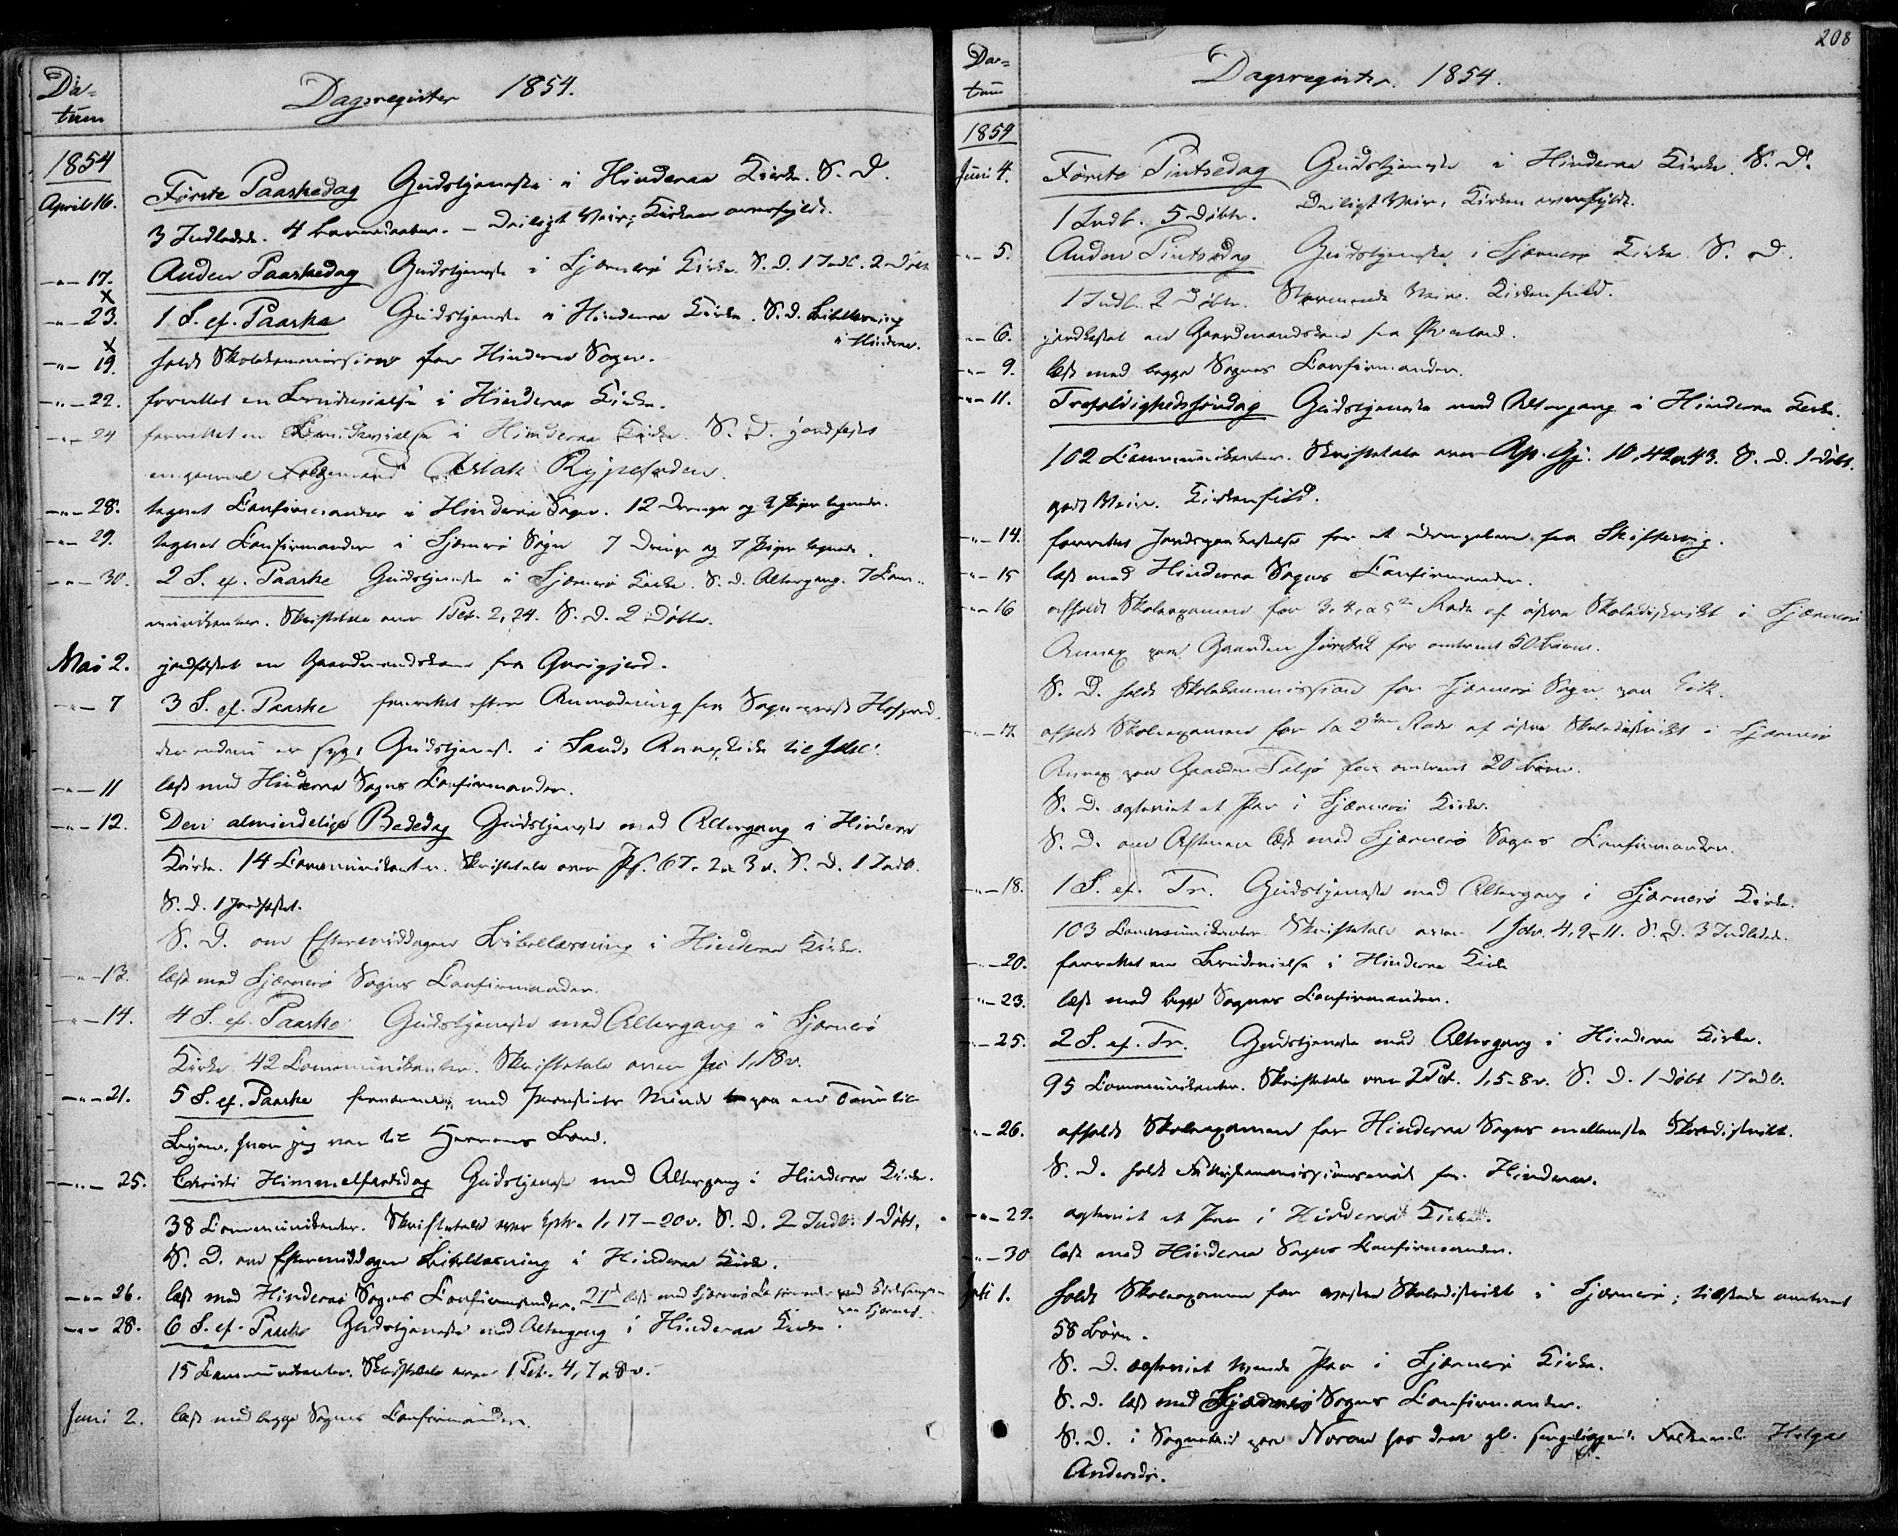 Da-
tum
Dagsregister 1854.
1854
April 16.
Første Paaskedag Gudstjeneste i Hinderaa Kirke. S. D.
3 Indledede. 4 Barnedaaber. – Deiligt Veir; Kirken overfyldt.
-"- 17. Anden Paaskedag Gudstjeneste i Sjærnerø Kirke. S. D. 1 Indl. 2 Døbte
x
-"- 23. 1 S. ef. Paaske Gudstjeneste i Hinderaa Kirke. S. D. Bibellæsning
i Hinderaa.
x
-"- 19. holdt Skolekommission for Hinderaa Sogn.
-"- 22. forrettet en Brudevielse i Hinderaa Kirke.
-"- 24 forrettet en Brudevielse i Hinderaa Kirke. S. D. jordfæstet
en gammel Aslak Rypefaden.
-"- 28. tegnet Confirmander i Hinderaa Sogn. 12 Drenge og 9 Piger tegnede.
-"- 29. tegnet Confirmander i Sjærnerø Sogn 7 Drenge og 7 Piger tegnede.
-"- 30. 2 S. ef. Paaske Gudstjeneste i Sjærnerø Kirke. S. D. Altergang. 7 Com-
munikanter. Skriftetale over 1 Pet. 2, 24. S. D. 2 Døbte.
Mai 2. jordfæstet en Gaardmandskone fra
-"- 7 3 S. ef. Paaske forrettet efter Anmodning fra Sognepræst
der endnu er syg, Gudstjeneste i Sands Annexkirke til
-"- 11 læst med Hinderaa Sogns Confirmander.
-"- 12. Den almindelige Bededag Gudstjeneste med Altergang i Hinderaa
Kirke. 14 Communikanter. Skriftetale over Ps. 67. 2 a 3 v. S. D. 1 Indl.
S. D. 1 Jordfæstet.
S. D. om Eftermiddagen Bibellæsning i Hinderaa Kirke.
-"- 13. læst med Sjærnerø Sogns Confirmander.
-"- 14. 4 S. ef. Paaske Gudstjeneste med Altergang i Sjærnerø
Kirke. 42 Communikanter. Skriftetale over 1, 18 v.
-"- 21. 5 S. ef. Paaske med Minde paa en Tour til
Byen, hvor jeg var til Herrens Bord.
-"- 25. Christi Himmelfartsdag Gudstjeneste med Altergang i Hinderaa Kirke.
38 Communikanter. Skriftetale over Eph. 1, 17–20 v. S. D. 2 Indl. 1 Døbt.
S. D. om Eftermiddagen Bibellæsning i Hinderaa Kirke.
-"- 26. læst med Hinderaa Sogns Confirmander. læst med Sjærnerø
paa Sjærnerø.
-"- 28. 6 S. ef. Paaske Gudstjeneste med Altergang i Hinderaa Kirke.
15 Communikanter. Skriftetale over 1 Pet. 4, 7 a 8 v.
Juni 2. læst med begge Sognes Confirmander.
208
Da-
tum
Dagsregister. 1854.
1854
Juni 4. Første Pintsedag Gudstjeneste i Hinderaa Kirke. S. D.
1 Indl. 5 Døbte. Deiligt Veir, Kirken overfyldt.
-"- 5. Anden Pintsedag Gudstjeneste i Sjærnerø Kirke. S. D.
1 Indl. 2 Døbte. Stormende Veir. Kirken fuld.
-"- 6. jordfæstet en Gaardmandskone fra
-"- 9. læst med begge Sognes Confirmander.
-"- 11. Trefoldighedssøndag Gudstjeneste med Altergang i Hinderaa Kirke.
102 Communikanter. Skriftetale over Ap. Gj. 10, 42 a 43. S. D. 1 Døbt.
godt Veir. Kirken fuld.
-"- 14. forrettet Jordspaakastelse for et Drengebarn fra Skiftesvig.
-"- 15 læst med Hinderaa Sogns Confirmander.
-"- 16 afholdt Skoleexamen for 3, 4, a 5te Rode af østre Skoledistrikt i Sjærnerø
Annex paa Gaarden for omtrent 50 Børn.
S. D. holdt Skolekommission for Sjærnerø Sogn paa Eik.
-"- 17. afholdt Skoleexamen for 1 a 2den Rode af østre Skoledistrikt i Sjærnerø
Annex paa Gaarden for omtrent 20 Børn.
S. D. ægteviet et Par i Sjærnerø Kirke.
S. D. om Aftenen læst med Sjærnerø Sogns Confirmander.
-"- 18. 1 S. ef. Tr. Gudstjeneste med Altergang i Sjærnerø Kirke.
103 Communikanter. Skriftetale over 1 Joh. 4, 9–11. S. D. 3 Indledede.
-"- 20. forrettet en Brudevielse i Hinderaa Kirke
-"- 23. læst med begge Sognes Confirmander.
-"- 25. 2 S. ef. Tr. Gudstjeneste med Altergang i Hinderaa Kirke.
95 Communikanter. Skriftetale over 2 Pet. 1, 5–8 v. S. D. 1 Døbt 1 Indl.
-"- 26. afholdt Skoleexamen for Hinderaa Sogns mellemste Skoledistrikt.
S. D. holdt for Hinderaa.
-"- 29. ægteviet et Par i Hinderaa Kirke.
-"- 30 læst med Hinderaa Sogns Confirmander.
Juli 1. holdt Skoleexamen for vestre Skoledistrikt i Sjærnerø; tilstede omtrent
58 Børn.
S. D. ægteviet tvende Par i Sjærnerø Kirke.
S. D. læst med Sjærnerø Sogns Confirmander.
S. D. i Sognebud paa hos den gl. sengeliggende Helge
Andersdr.